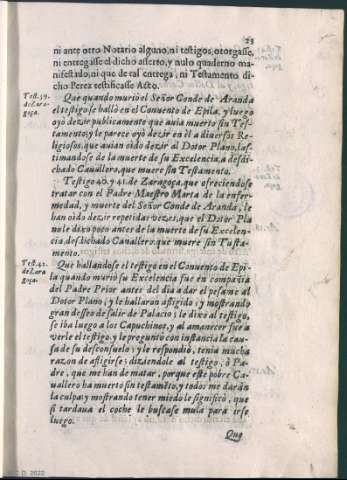 25
ni ante otro Notario alguno, ni testigos, otorgasse,
ni entregasse el dicho asserto, y nulo quaderno ma-
nifestado, ni que de tal entrega, ni Testamento di-
cho Perez testificasse Acto.
Test. 39.
de Zara-
goça.
Que quando murió el Señor Conde de Aranda
el testigo se halló en el Convento de Epila, y luego
oyó dezir publicamente que auia muerto sin Tes-
tamento, y le parece oyó dezir en él a diuersos Re-
ligiosos, que auian oido dezir al Dotor Plano, las-
timandose de la muerte de su Excelencia, a desdi-
chado Cauallero, que muere sin Testamento.
Testigo 40. y 41. de Zaragoça, que ofreciendose
tratar con el Padre Maestro Marta de la enfer-
medad, y muerte del Señor Conde de Aranda, le
han oido dezir repetidas vezes, que el Dotor Pla
no le dixo poco antes de la muerte de su Excelen-
cia, desdichado Cauallero que muere sin Testa-
mento.
Test. 42.
de Zara
goça.
Que hallandose el testigo en el Conuento de Epi-
la quando murió su Excelencia fue en compañia
del Padre Prior antes del dia a dar el pesame al
Dotor Plano, y le hallaron afligido, y mostrando
gran desseo de salir de Palacio, le dixo al testigo,
se iba luego a los Capuchinos, y al amanecer fue a
verle el testigo, y le preguntó con instancia la cau-
sa de su desconsuelo, y le respondió, tenia mucha
razon de afligirse; diziendole al testigo, ò Pa-
dre, que me han de matar, porque este pobre Ca-
uallero ha muerto sin testamẽto, y todos me darán
la culpa; y mostrando tener miedo le significò, que
si tardaua el coche le buscase mula para irse
luego.
Que